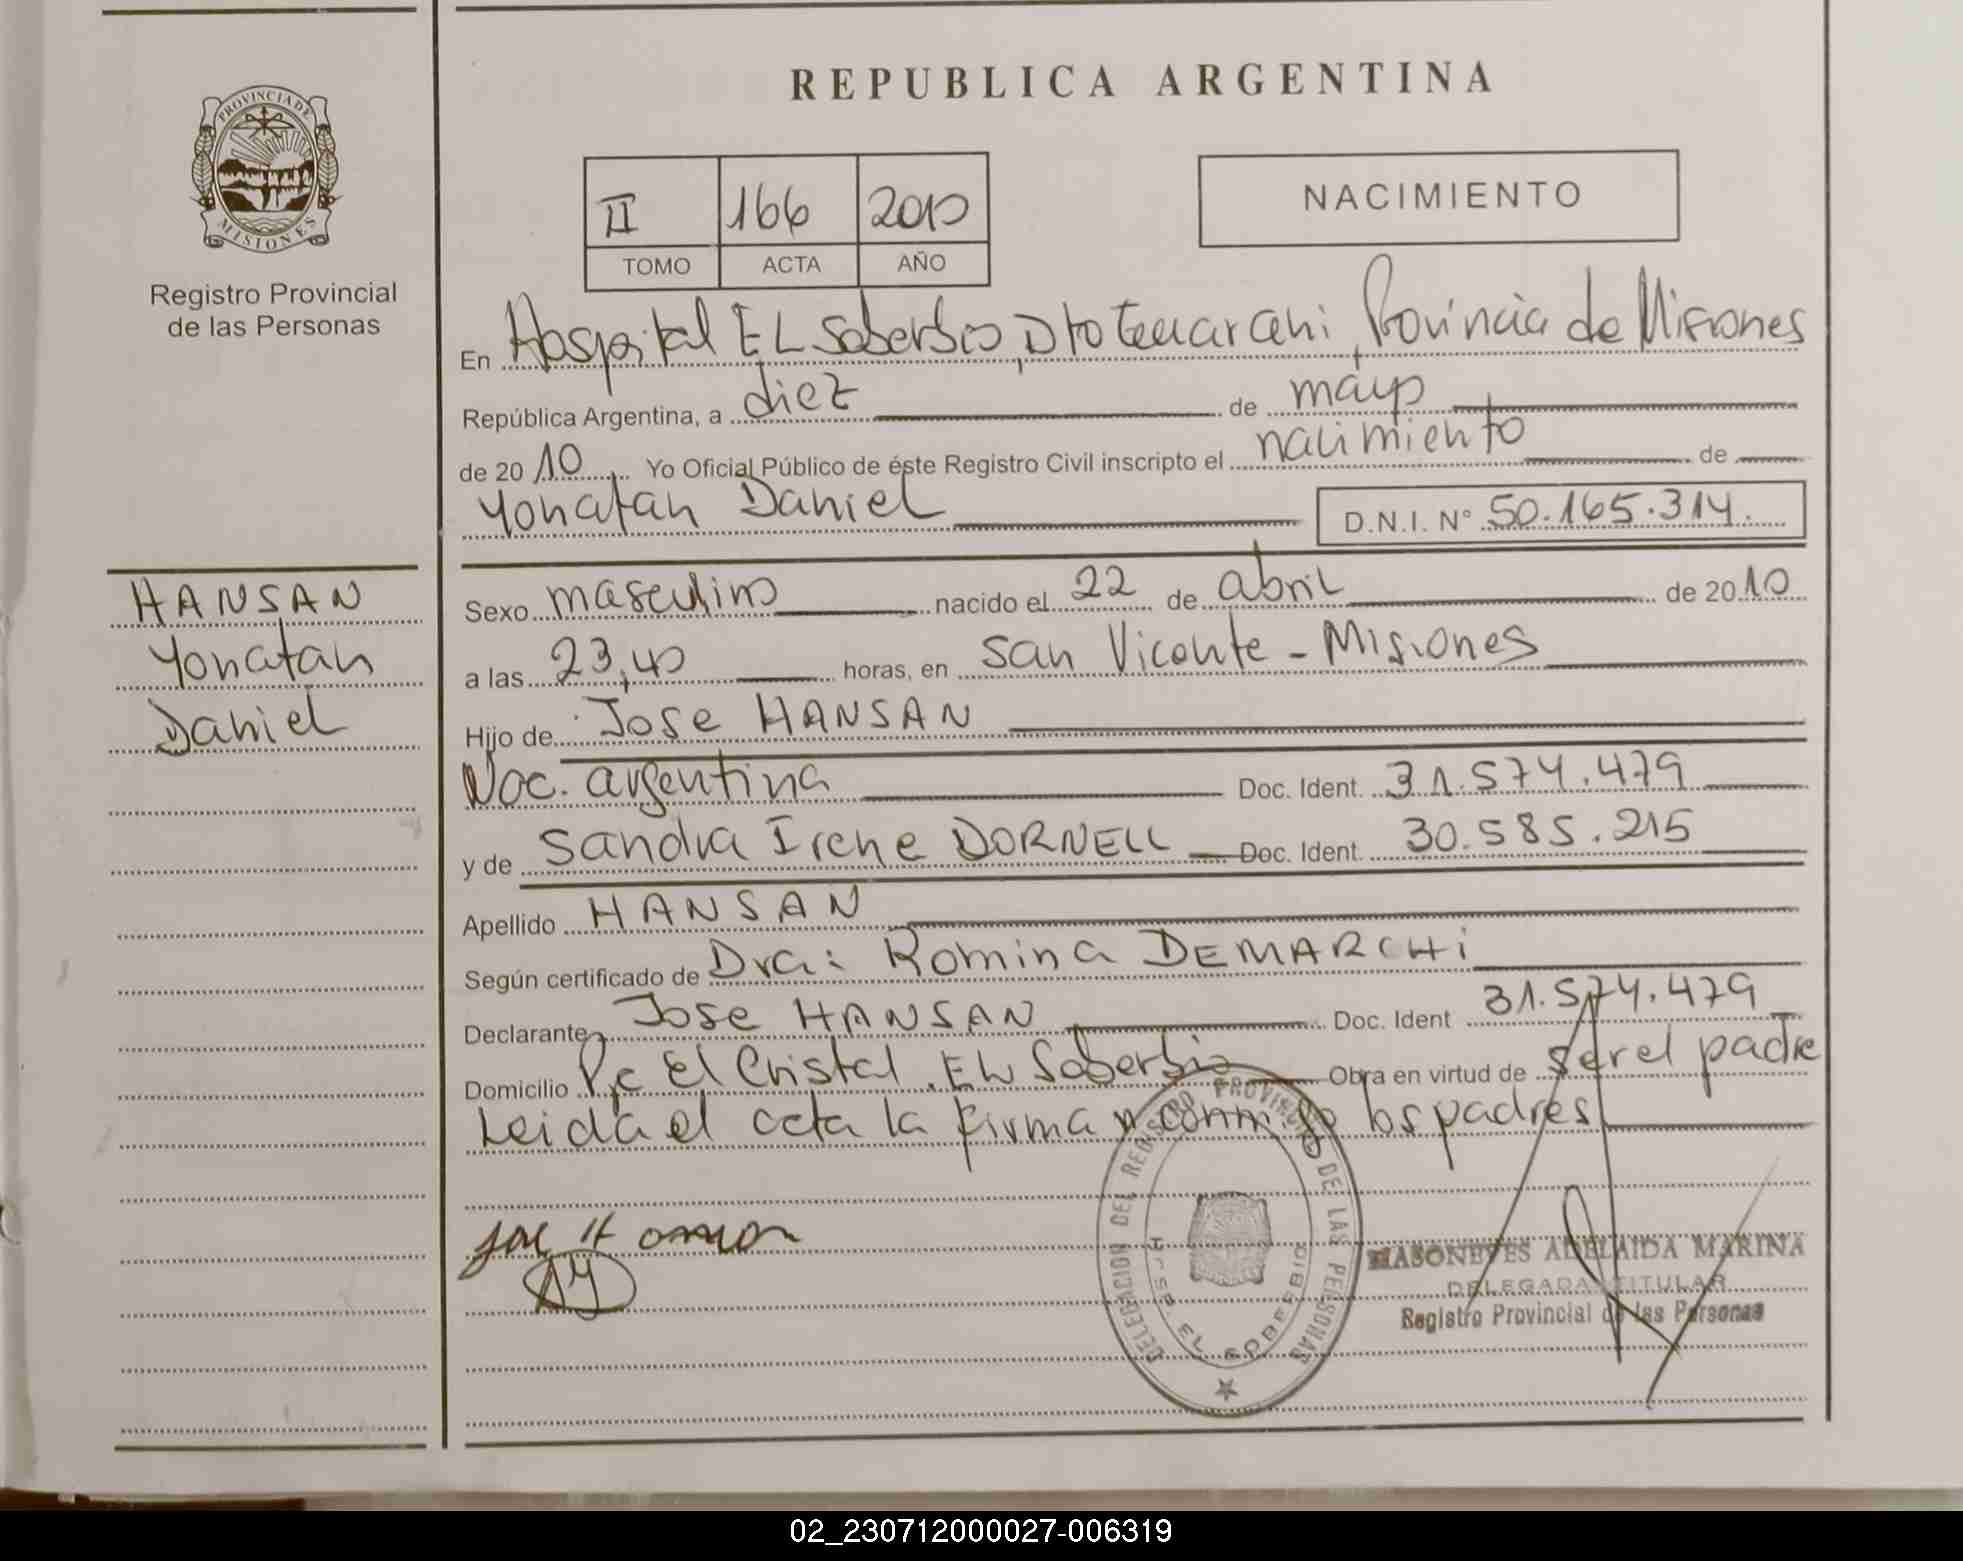 REPUBLICA ARGENTINA
PROVINCIA DE
MISIONES
Registro Provincial
de las Personas
II 166 2010
TOMO ACTA AÑO
NACIMIENTO
En Hospital EL Soberbio, Dto Guarani, Provincia de Misiones
República Argentina, a diez de mayo
de 2010 Yo Oficial Público de éste Registro Civil inscripto el nacimiento de
Yonatan Daniel D.N.I. N° 50.165.314.
HANSAN
Yonatan
Daniel
Sexo masculino nacido el 22 de abril de 2010
a las 23,40 horas, en San Vicente - Misiones
Hijo de Jose HANSAN
Nac. argentina Doc. Ident. 31.574.479
y de Sandra Irene DORNELL Doc. Ident. 30.585.215
Apellido HANSAN
Según certificado de Dra: Romina DEMARCHi
Declarante Jose HANSAN Doc. Ident 31.574.479
Domicilio El Cristal. EL Soberbio Obra en virtud de ser el padre
Leida el acta la firman conmigo los padres
DELEGACION DEL REGISTRO PROVINCIAL DE LAS PERSONAS
HOSP. EL SOBERBIO
MASONEVES ADELAIDA MARINA
DELEGADA TITULAR
Registro Provincial de las Personas
02_230712000027-006319